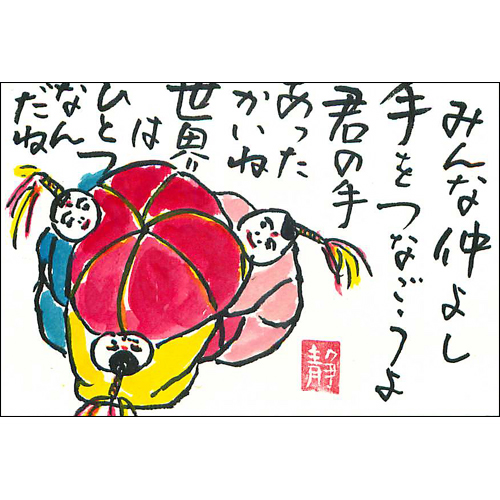 みんな仲よし
手をつなごうよ
君の手
あった
かいね
世界
は
ひとつ
なん
だね
静